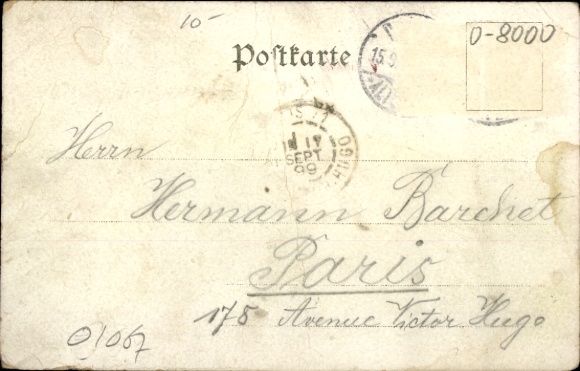 10-
Postkarte
15.9
0-8000
17
SEPT
99
HUGO
Herrn
Hermann Barchet
Paris
178 Avenue Victor Hugo
0/067